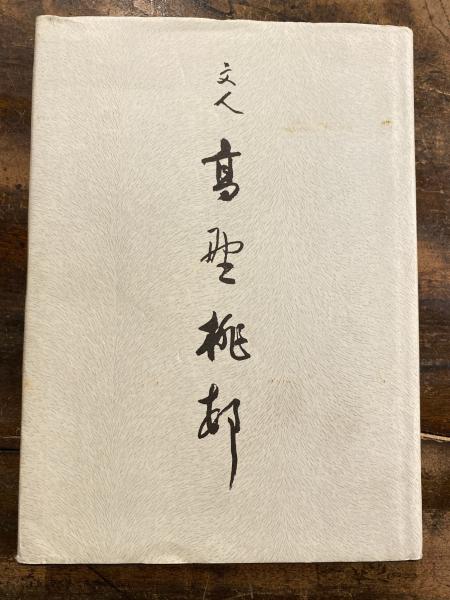 文人 高野桃邨